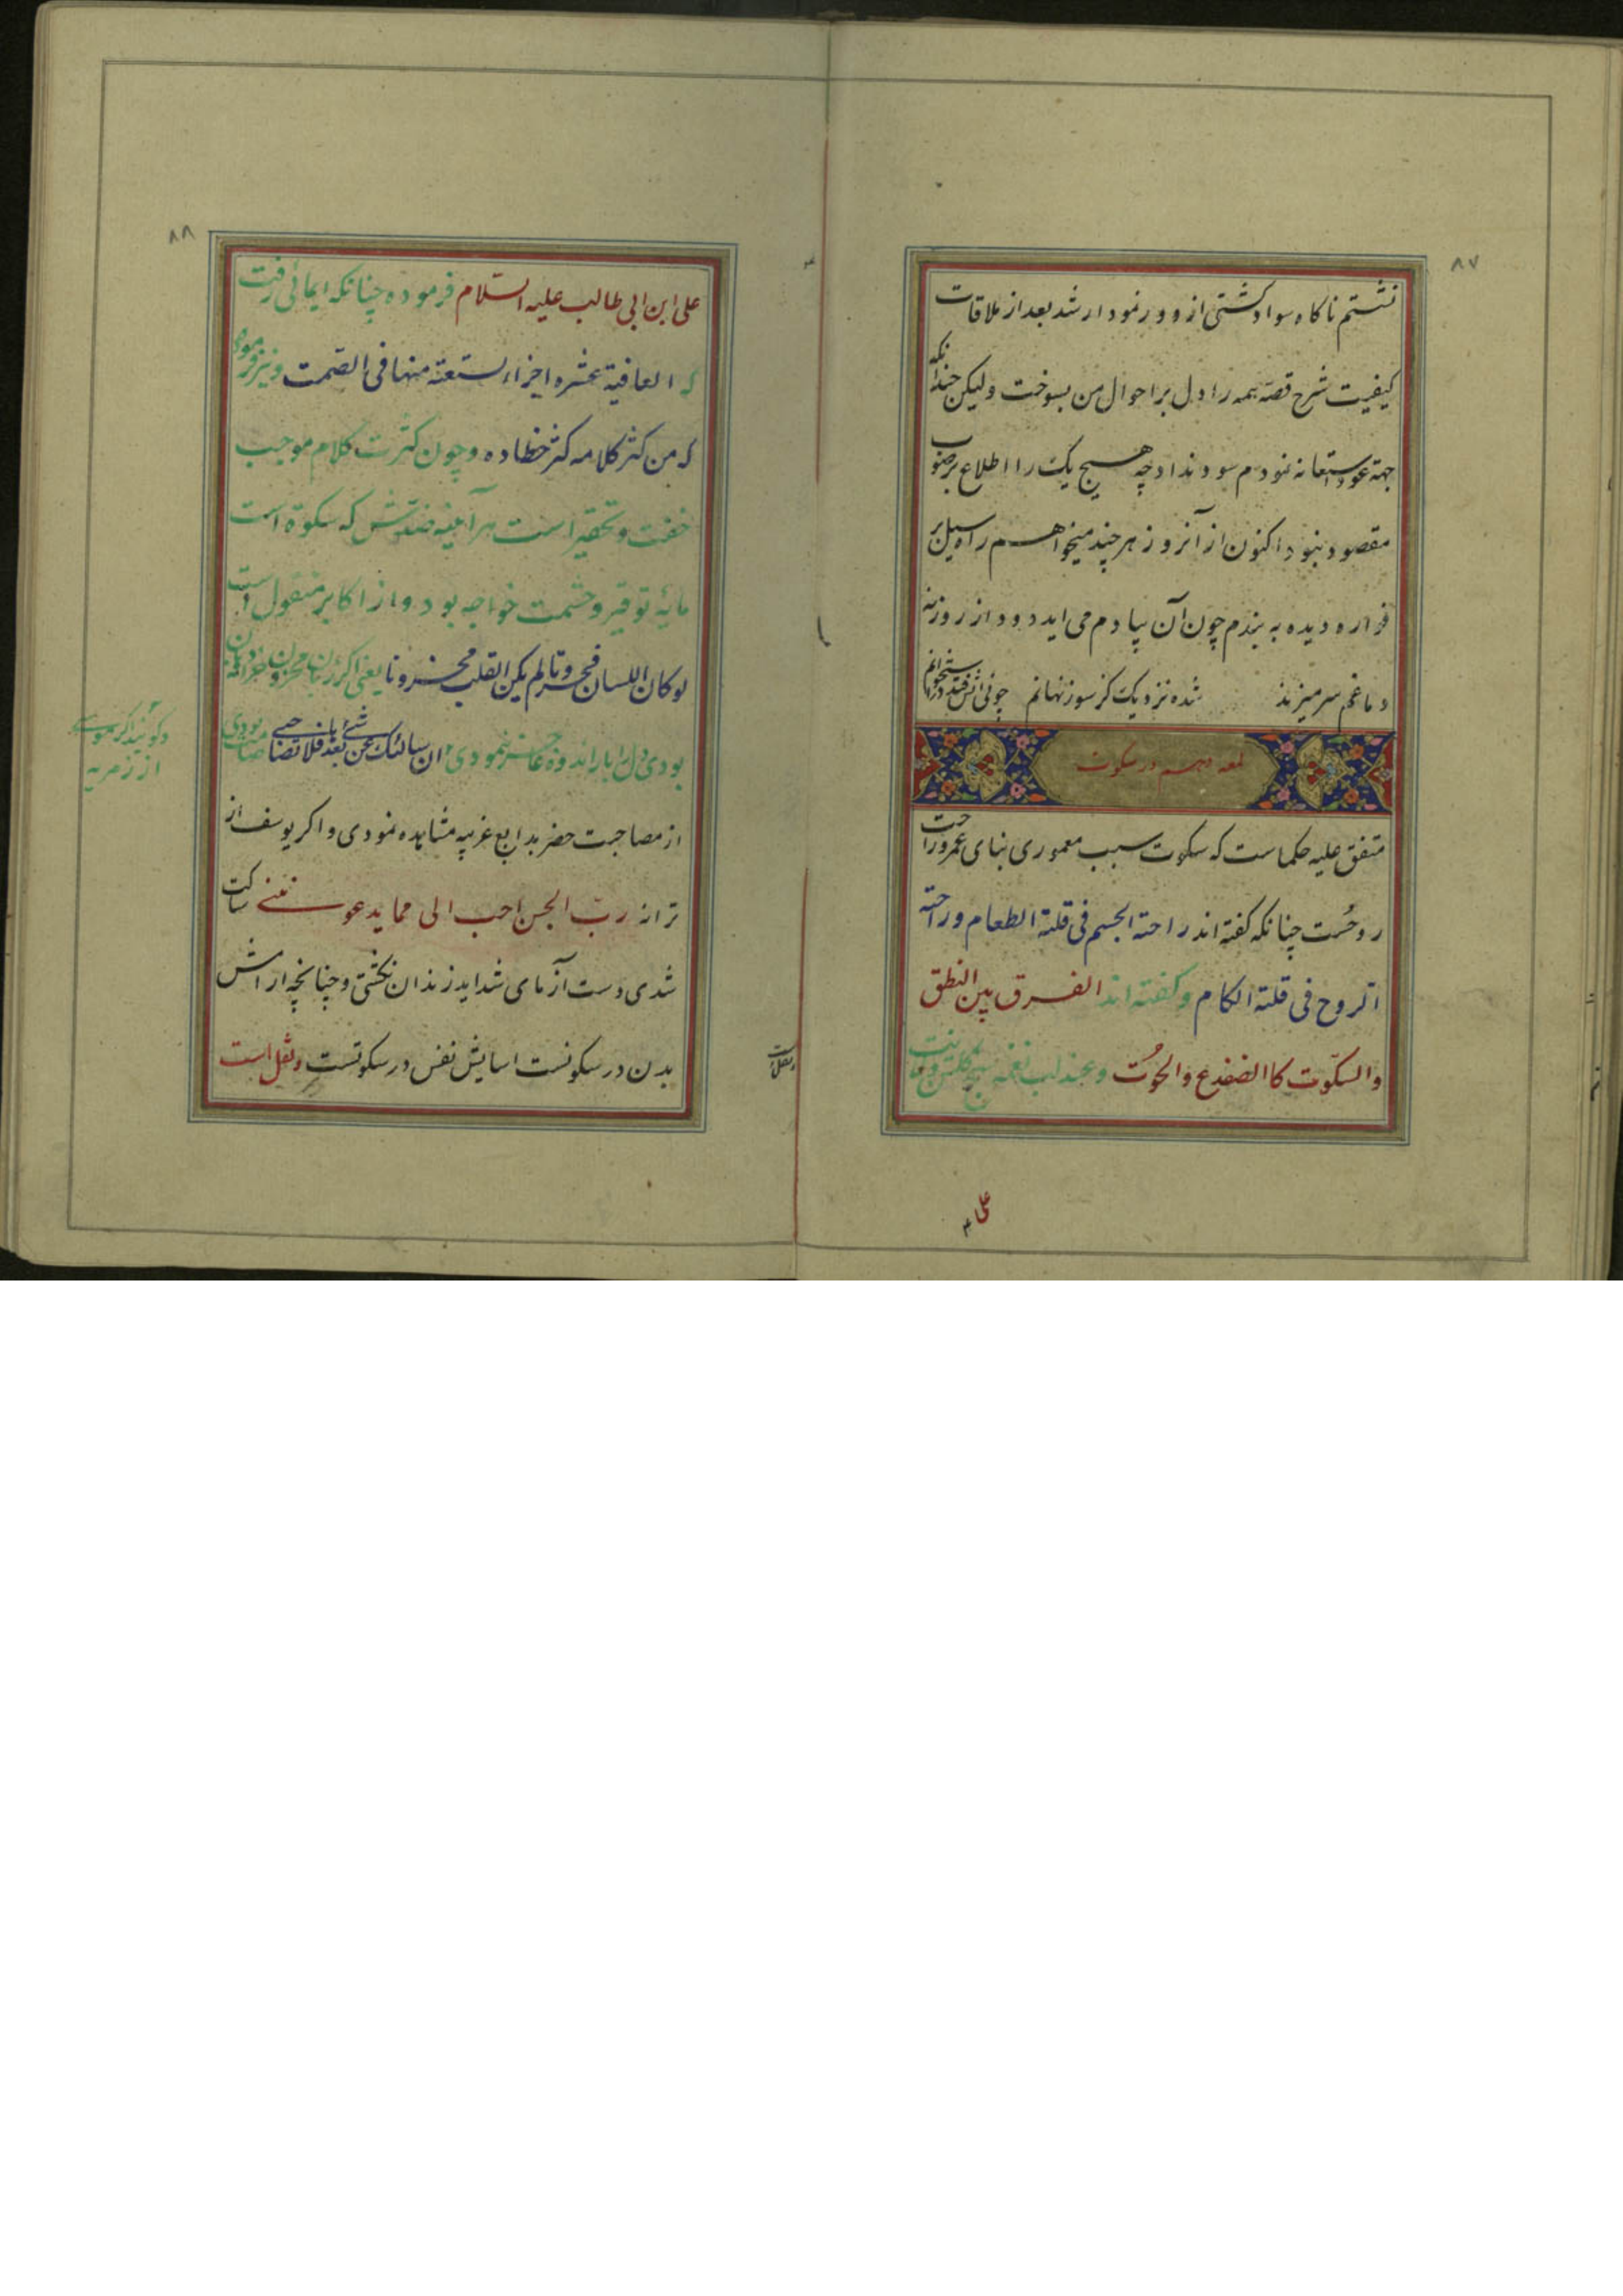 ۸۷
نشستم ناکاه سواد کشتی از دور نمودار شد بعد از ملاقات
کیفیت شرح قصه همه را دل بر احوال من بسوخت ولیکن چندانکه
جهة عود استعانه نمودم سود نداد چه هیچ یک را اطلاع بر صوب
مقصود نبود اکنون از آنروز هر چند میخواهم راه سیل بر
فواره دیده به بندم چون آن بیادم می اید دود از روزنه
دماغم سر میزند شده نزدیک کز سوز نهانم چونی اتش فتد در استخوانم
لمعه دهم در سکوت
متفق علیه حکماست که سکوت سبب معموری بنای عمر و راحت
روحست چنانکه کفته اند راحة الجسم فی قلة الطعام و راحة
الروح فی قلة الکلام و کفته اند الفرق بین النطق
والسکوت کا الضفدع والحوت و عندلیب نغمه سنج کلشن ولایت
علی
۸۸
علی ابن ابی طالب علیه السلام فرموده چنانکه ایمائی رفت
که العافیة عشره اجزاء تسعة منها فی الصمت و نیز فرموده
که من کثر کلامه کثر خطاده و چون کثرت کلام موجب
خفت و تحقیر است هر آینه ضدش که سکوة است
مایه توقیر و حشمت خواجه بود و از اکابر منقول است
لو کان اللسان مخزونا لم یکن القلب محزونا یعنی اکر زبان مخزون خزانه دهان
بودی دل را بار اندوه عاجز ننمودی ان سالتک عن شئ بعد فلا تصاحبنی صامت بودی
و کویند اکر موسی
از زمزمه
از مصاحبت خضر بدایع غریبه مشاهده نمودی و اکر یوسف از
ترانه رب السجن احب الی مما یدعوننی ساکت
شدی دست آزمای شداید زندان نکشتی و چنانچه ارامش
بدن در سکونست اسایش نفس در سکوتست و نقل است